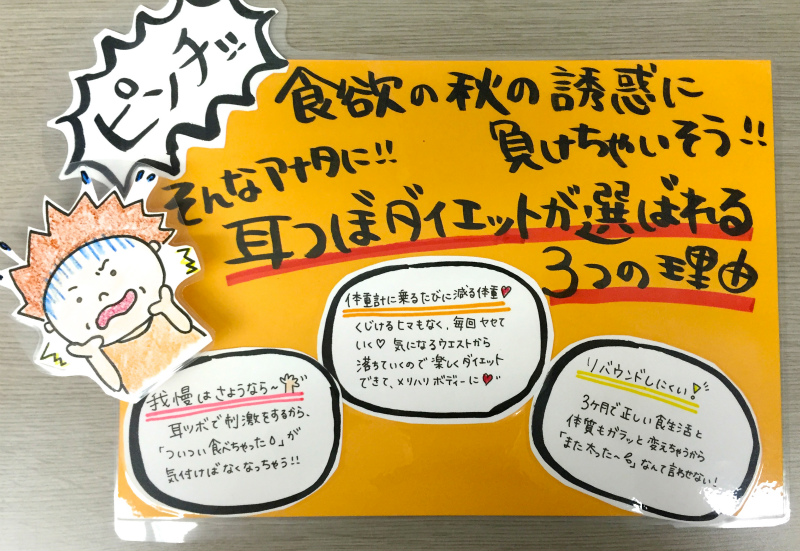 ピンチ!!
食欲の秋の誘惑に
負けちゃいそう!!
そんなアナタに!!
耳つぼダイエットが選ばれる
3つの理由
体重計に乗るたびに減る体重♥
くじけるヒマもなく、毎回ヤセて
いく♡ 気になるウエストから
落ちていくので楽しくダイエット
できて、メリハリボディーに♥
我慢はさようなら〜
耳ツボで刺激をするから、
「ついつい食べちゃった」が
気付けばなくなっちゃう!!
リバウンドしにくい!
3ヶ月で正しい食生活と
体質もガラッと変えちゃうから
「また太った〜」なんて言わせない!